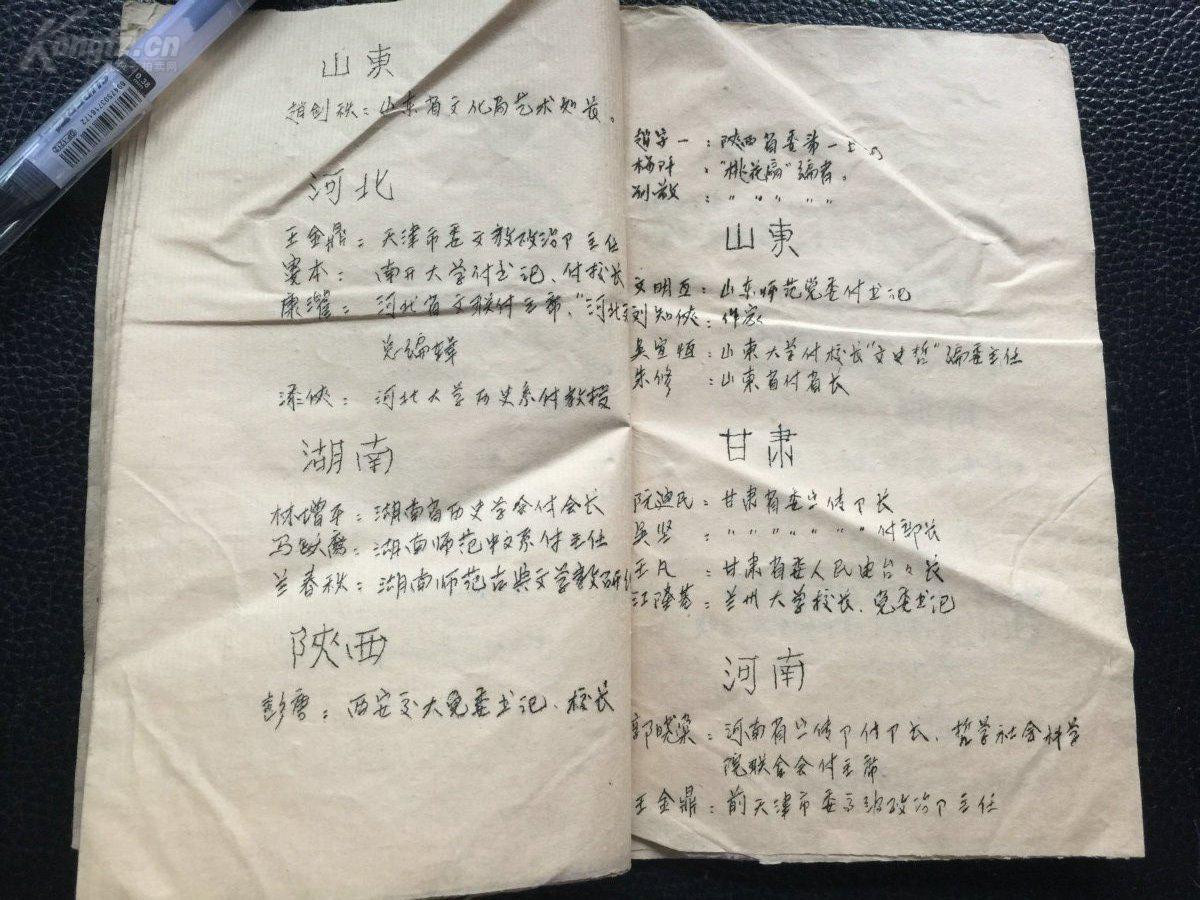 Kongfz.cn
0.38
山東
趙剑秋：山东省文化局艺术处长。
河北
王金鼎：天津市委文教政治卩主任
娄本：南开大学付书记、付校长
康濯：河北省文联付主席、“河北文
总编辑
漆侠：河北大学历史系付教授
湖南
林增平：湖南省历史学会付会长
马：湖南师范中文系付主任
兰春秋：湖南师范古典文学教研
陝西
彭康：西安交大党委书记、校长
趙守一：陝西省委第一书记
梅阡：“桃花扇”编者。
刘散：〃〃〃〃
山東
文明亙：山东师范党委付书记
刘知侠：作家
吳宣恒：山東大学付校长“文史哲”编委主任
朱修：山東省付省长
甘肃
阮迪民：甘肃省委宣传卩长
吳坚：〃〃〃〃〃〃付部长
王凡：甘肃省委人民电台台长
江隆基：兰州大学校长、党委书记
河南
郭晓棠：河南省宣传卩付卩长、哲学社会科学
院联合会付主席
王金鼎：前天津市委政治卩主任